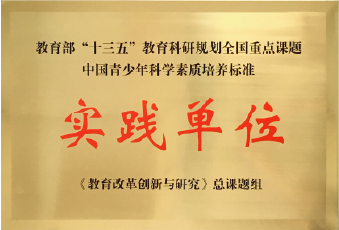 教育部“十三五”教育科研规划全国重点课题
中国青少年科学素质培养标准
实践单位
《教育改革创新与研究》总课题组